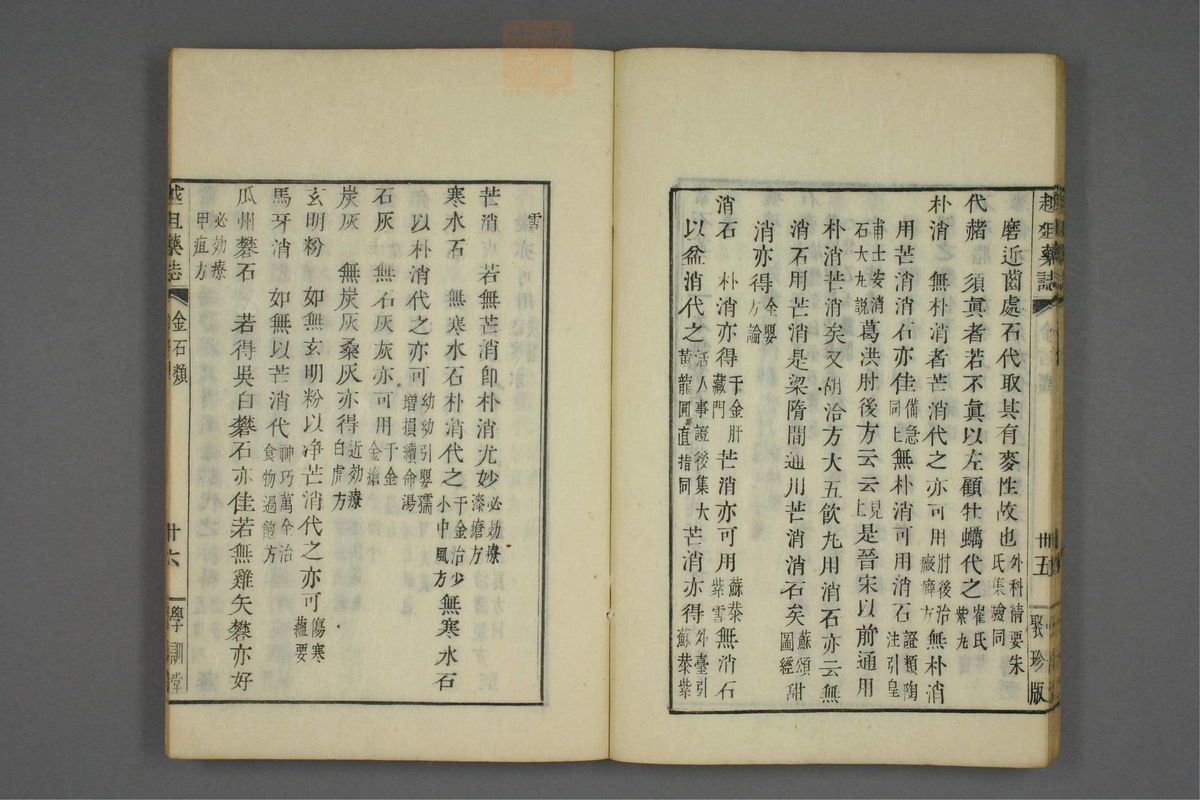 磨近齒處石代取其有麥性故也外科精要朱氏集驗同
代赭　須眞者若不眞以左顧牡蠣代之崔氏紫丸
朴消　無朴消者芒消代之亦可用肘後治癥癖方無朴消
用芒消消石亦佳備急同上無朴消可用消石證類陶注引皇
甫士安消石大丸說葛洪肘後方云云見上是晉宋以前通用
朴消芒消矣又胡洽方大五飮丸用消石亦云無
消石用芒消是梁隋間通用芒消消石矣蘇頌圖經甜
消亦得全嬰方論
消石　朴消亦得千金肝藏門芒消亦可用蘇恭紫雪無消石
以盆消代之活人事證後集大黃龍圓直指同芒消亦得外臺引蘇恭紫
越俎藥誌
卅五
聚珍版
雪
芒消　若無芒消卽朴消尤妙必効療漆瘡方
寒水石　無寒水石朴消代之千金治少小中風方無寒水石
以朴消代之亦可幼幼引嬰孺增損續命湯
石灰　無石灰灰亦可用千金金瘡
炭灰　無炭灰桑灰亦得近効療白虎方
玄明粉　如無玄明粉以净芒消代之亦可傷寒蘊要
馬牙消　如無以芒消代神巧萬全治食物過飽方
瓜州礬石　若得吳白礬石亦佳若無雞矢礬亦好
必効療甲疽方
越俎藥誌
金石類
卅六
學訓堂